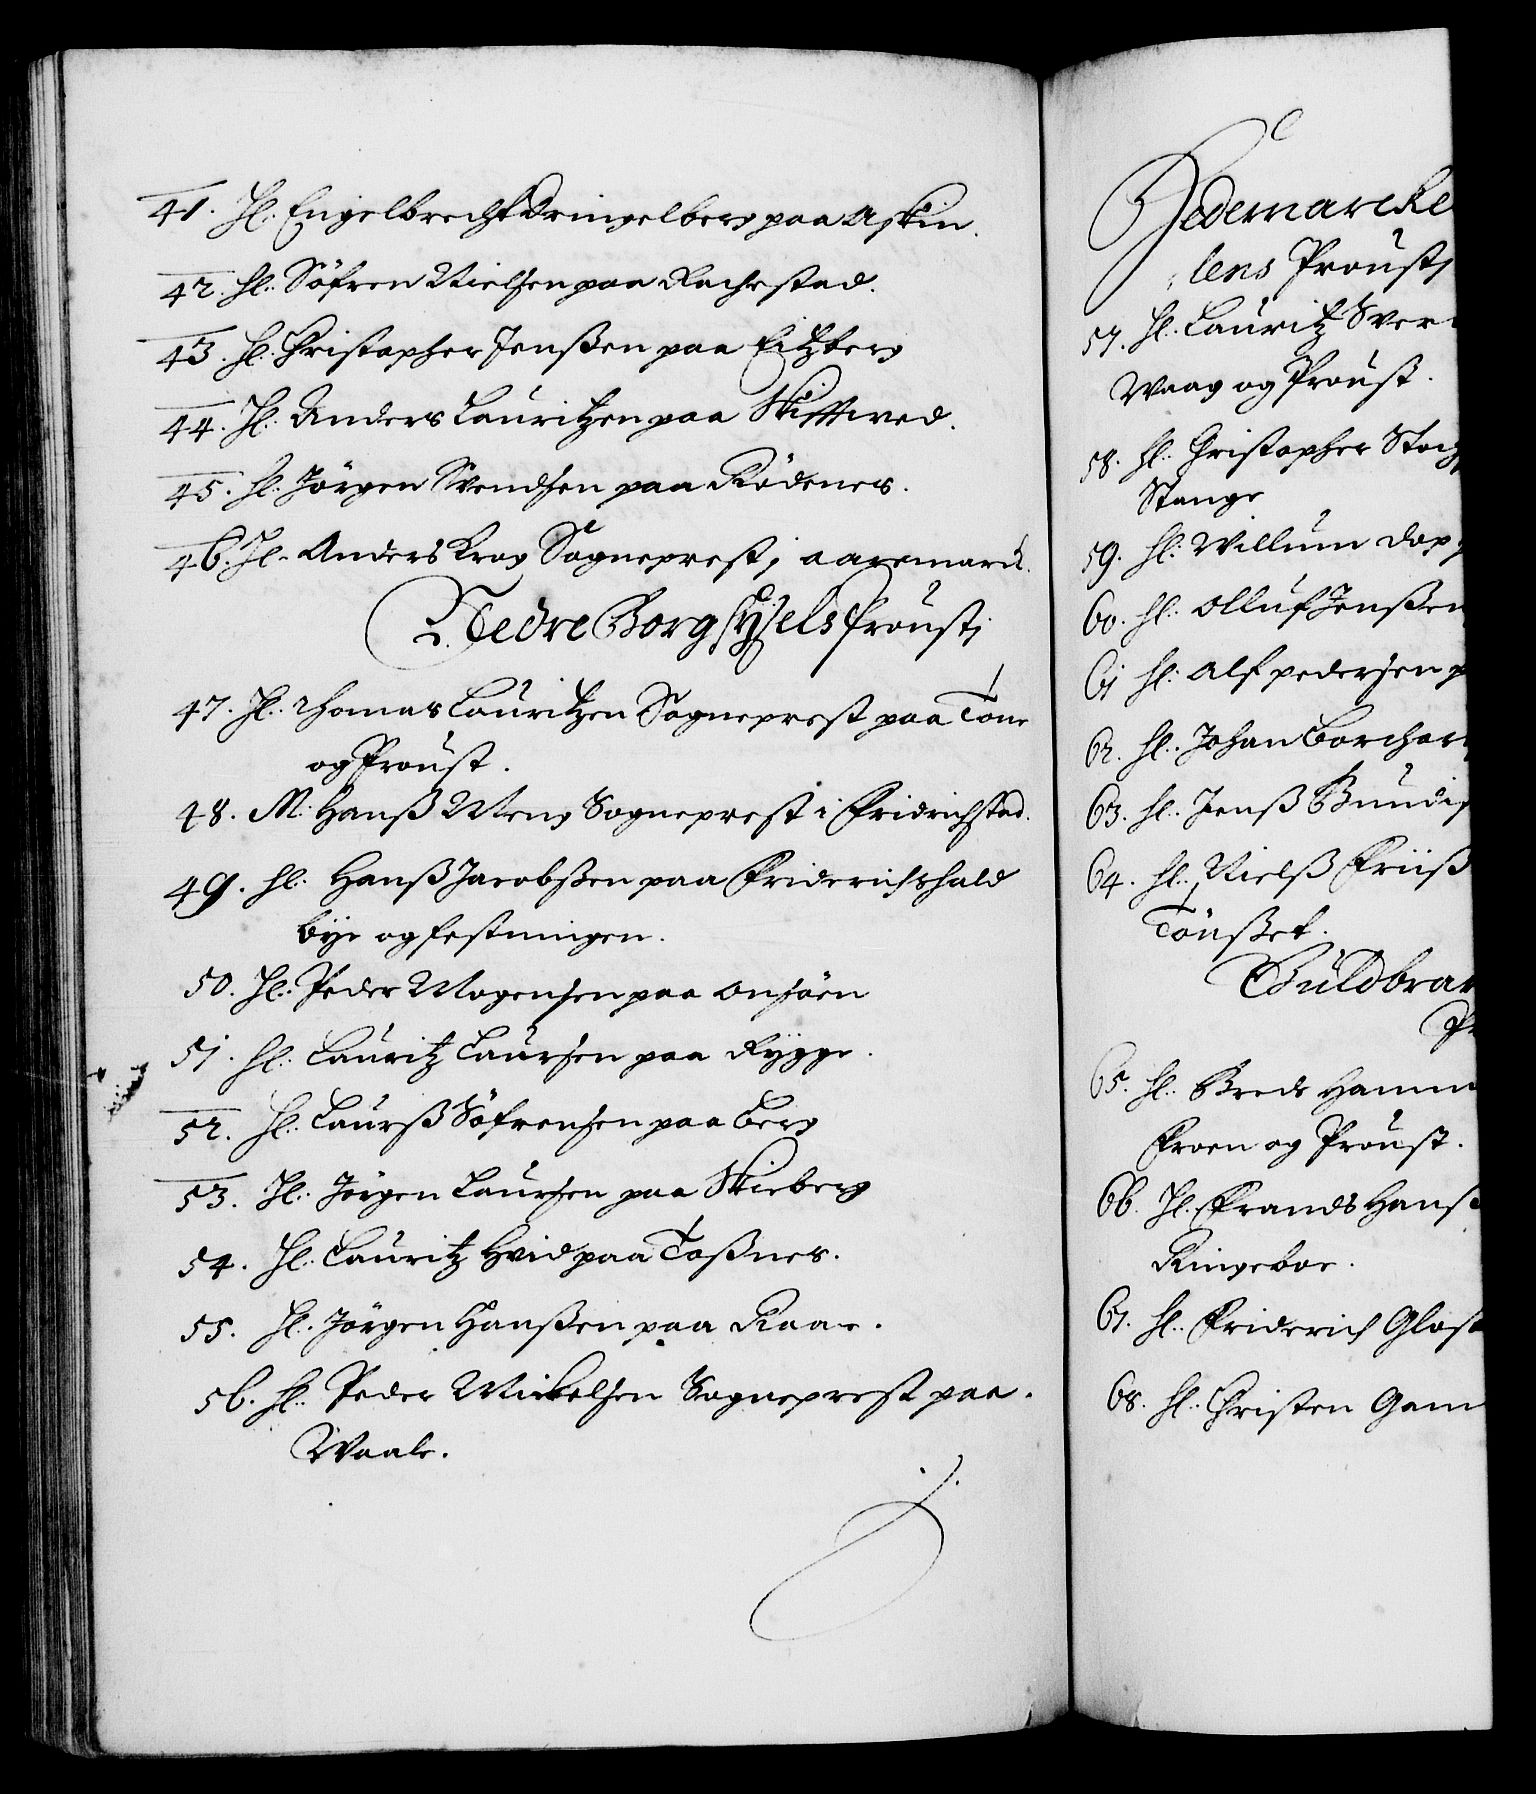 41. Hl: Engelbrecht Kringelberg paa Askim.
42. Hl: Söfren Nielsen paa Rachestad.
43. Hl: Christopher Jenßen paa Eitzberg
44. Hl: Anders Lauritzen paa Skiftwed.
45. Hl: Jörgen Svendsen paa Rödenes.
46. Hl: Anders Krag Sogneprest i Aaremarck.
Nedre Borgsysels Prousti
47. Hl: Thomas Lauritzen Sogneprest paa Tone
og Proust.
48. M: Hanß Meng Sogneprest i Fridrichstad.
49. Hl: Hanß Jacobßen paa Friderichshald
bye og festningen.
50. Hl: Peder Mogensen paa Onsöen
51. Hl: Lauritz Laursen paa Rygge.
52. Hl: Laurß Söfrensen paa Berg
53. Hl: Jörgen Laursen paa Skieberg
54. Hl: Lauritz Hvid paa Toßnes.
55. Hl: Jörgen Hanßen paa Raae.
56. Hl: Peder Mickelsen Sogneprest paa
Waale.
Hedemarcke
lens Prousti
57. Hl: Lauritz Sver
Waag og Proust.
58. Hl: Christopher Stoc
Stange
59. Hl: Willum Dop
60. Hl: Olluf Jenßen
61 Hl: Alf Pedersen p
62. Hl: Johan Borchar
63. Hl: Jenß Bundi
64. Hl: Nielß Friiß
Tönßet.
Guldbran
Pr
65. Hl: Brede Hamm
Froen og Proust.
66. Hl: Frands Hanß
Ringeboe.
67. Hl: Friderich Glos
68. Hl: Christen Gam